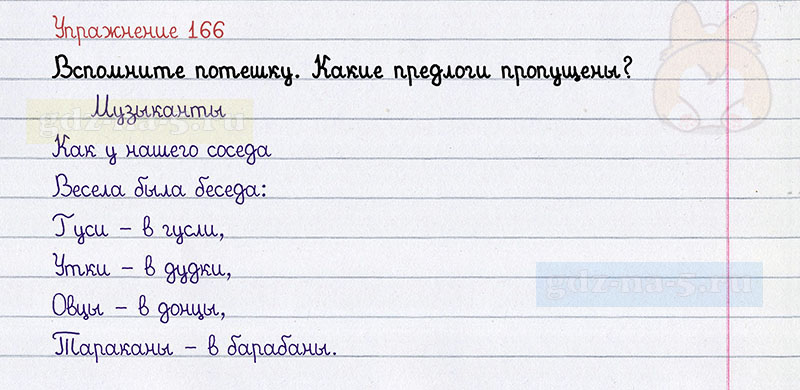 Упражнение 166
Вспомните потешку. Какие предлоги пропущены?
Музыканты
Как у нашего соседа
Весела была беседа:
Гуси – в гусли,
Утки – в дудки,
Овцы – в донцы,
Тараканы – в барабаны.
gdz-na-5.ru
gdz-na-5.ru